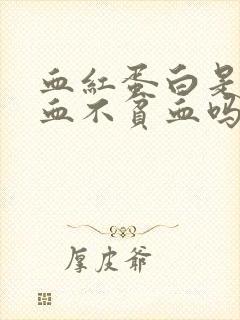 血紅蛋白是
血不貧血吗
厚皮爷